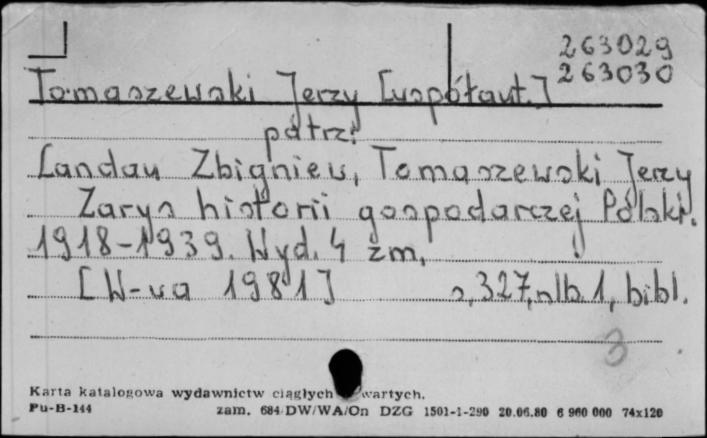 263029
Tomaszewski Jerzy [współaut.] 263030
patrz:
Landau Zbigniew, Tomaszewski Jerzy
Zarys historii gospodarczej Polski.
1918-1939. Wyd. 4 zm.
[W-wa 1981] s. 327, nlb. 1, bibl.
3
Karta katalogowa wydawnictw ciągłych wartych.
Pu-B-144 zam. 684/DW/WA/On DZG 1501-1-290 20.06.80 6 960 000 74x120